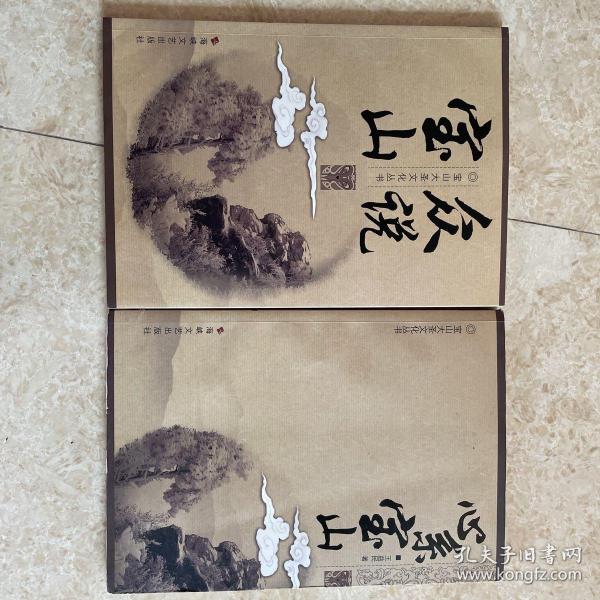 ◎宝山大圣文化丛书
众说
宝山
海峡文艺出版社
◎宝山大圣文化丛书
心系宝山
著
海峡文艺出版社
孔夫子旧书网
www.kongfz.com